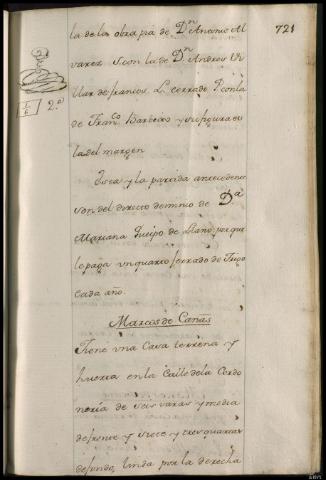 721
la de la obra pia de Dn Antonio Al
varez S con la de Dn Andres Vi
llar de francos L cerrado P con la
2.ª
de Franco Barbeito y su figura es
la del margen
Esta y la partida antecedente
son del directo dominio de Dª
Mariana Queipo de Llano por que
le paga un quarto ferrado de Trigo
cada año.
Marcos de Canas
Tiene una Casa terrena y
huerta en la Calle de la Cordo
neria de seis varas y media
de frente y siete y tres quartas
de fondo, linda por la derecha